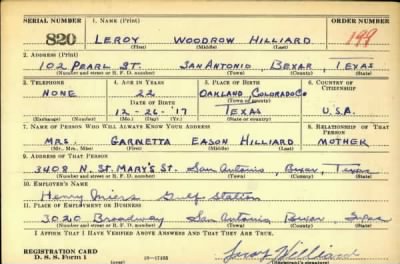 SERIAL NUMBER 1. NAME (Print) ORDER NUMBER
820 LEROY WOODROW HILLIARD 199
(First) (Middle) (Last)
2. ADDRESS (Print)
102 PEARL ST. SAN ANTONIO, BEXAR, TEXAS
(Number and street or R. F. D. number) (Town) (County) (State)
3. TELEPHONE 4. AGE IN YEARS 5. PLACE OF BIRTH 6. COUNTRY OF CITIZENSHIP
NONE 22 OAKLAND, COLORADO CO
DATE OF BIRTH (Town or county)
12-26-'17 TEXAS U.S.A.
(Exchange) (Number) (Mo.) (Day) (Yr.) (State or country)
7. NAME OF PERSON WHO WILL ALWAYS KNOW YOUR ADDRESS 8. RELATIONSHIP OF THAT PERSON
MRS. GARNETTA EASON HILLIARD MOTHER
(Mr., Mrs., Miss) (First) (Middle) (Last)
9. ADDRESS OF THAT PERSON
3408 N. ST. MARY'S ST. San Antonio, Bexar, Texas
(Number and street or R. F. D. number) (Town) (County) (State)
10. EMPLOYER'S NAME
Henry Gulf Station
11. PLACE OF EMPLOYMENT OR BUSINESS
3020 Broadway San Antonio Bexar Texas
(Number and street or R. F. D. number) (Town) (County) (State)
I AFFIRM THAT I HAVE VERIFIED ABOVE ANSWERS AND THAT THEY ARE TRUE.
REGISTRATION CARD
D. S. S. Form 1 Leroy Hilliard
(Registrant's signature)